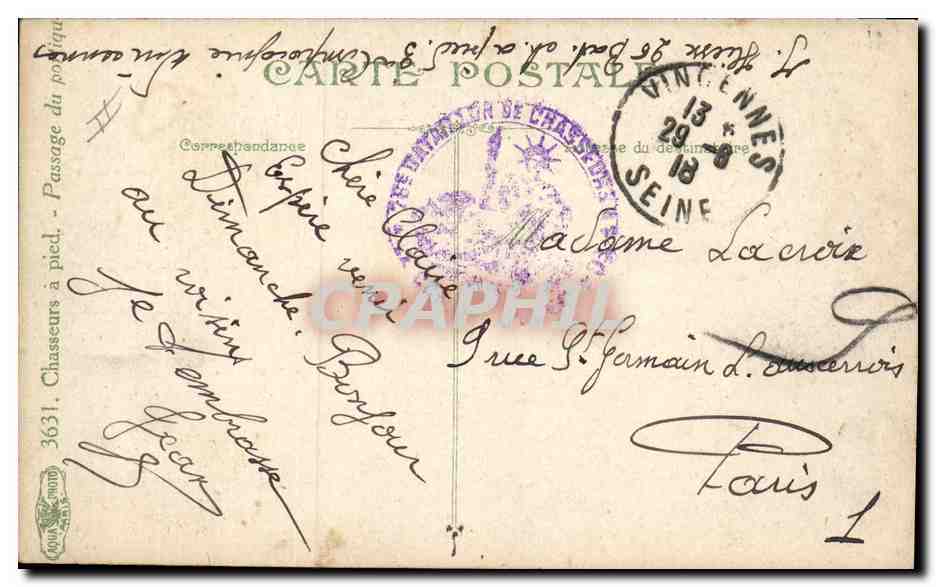 J. 26 Bat. ch. a pied. 3 Compagnie Vincennes
CARTE POSTALE
Correspondance
Adresse du destinataire
BATAILLON DE CHASSEURS A PIED
VINCENNES
13 *
29 - 8
18
SEINE
Chère Claire
Espère venir
Dimanche. Bonjour
au voisins
Je t'embrasse
Jean
Madame Lacroix
9 rue St Germain L. auxerrois
Paris
9
1
3631. Chasseurs à pied. - Passage du portique
AQUA PHOTO
PARIS
CPAPHIL